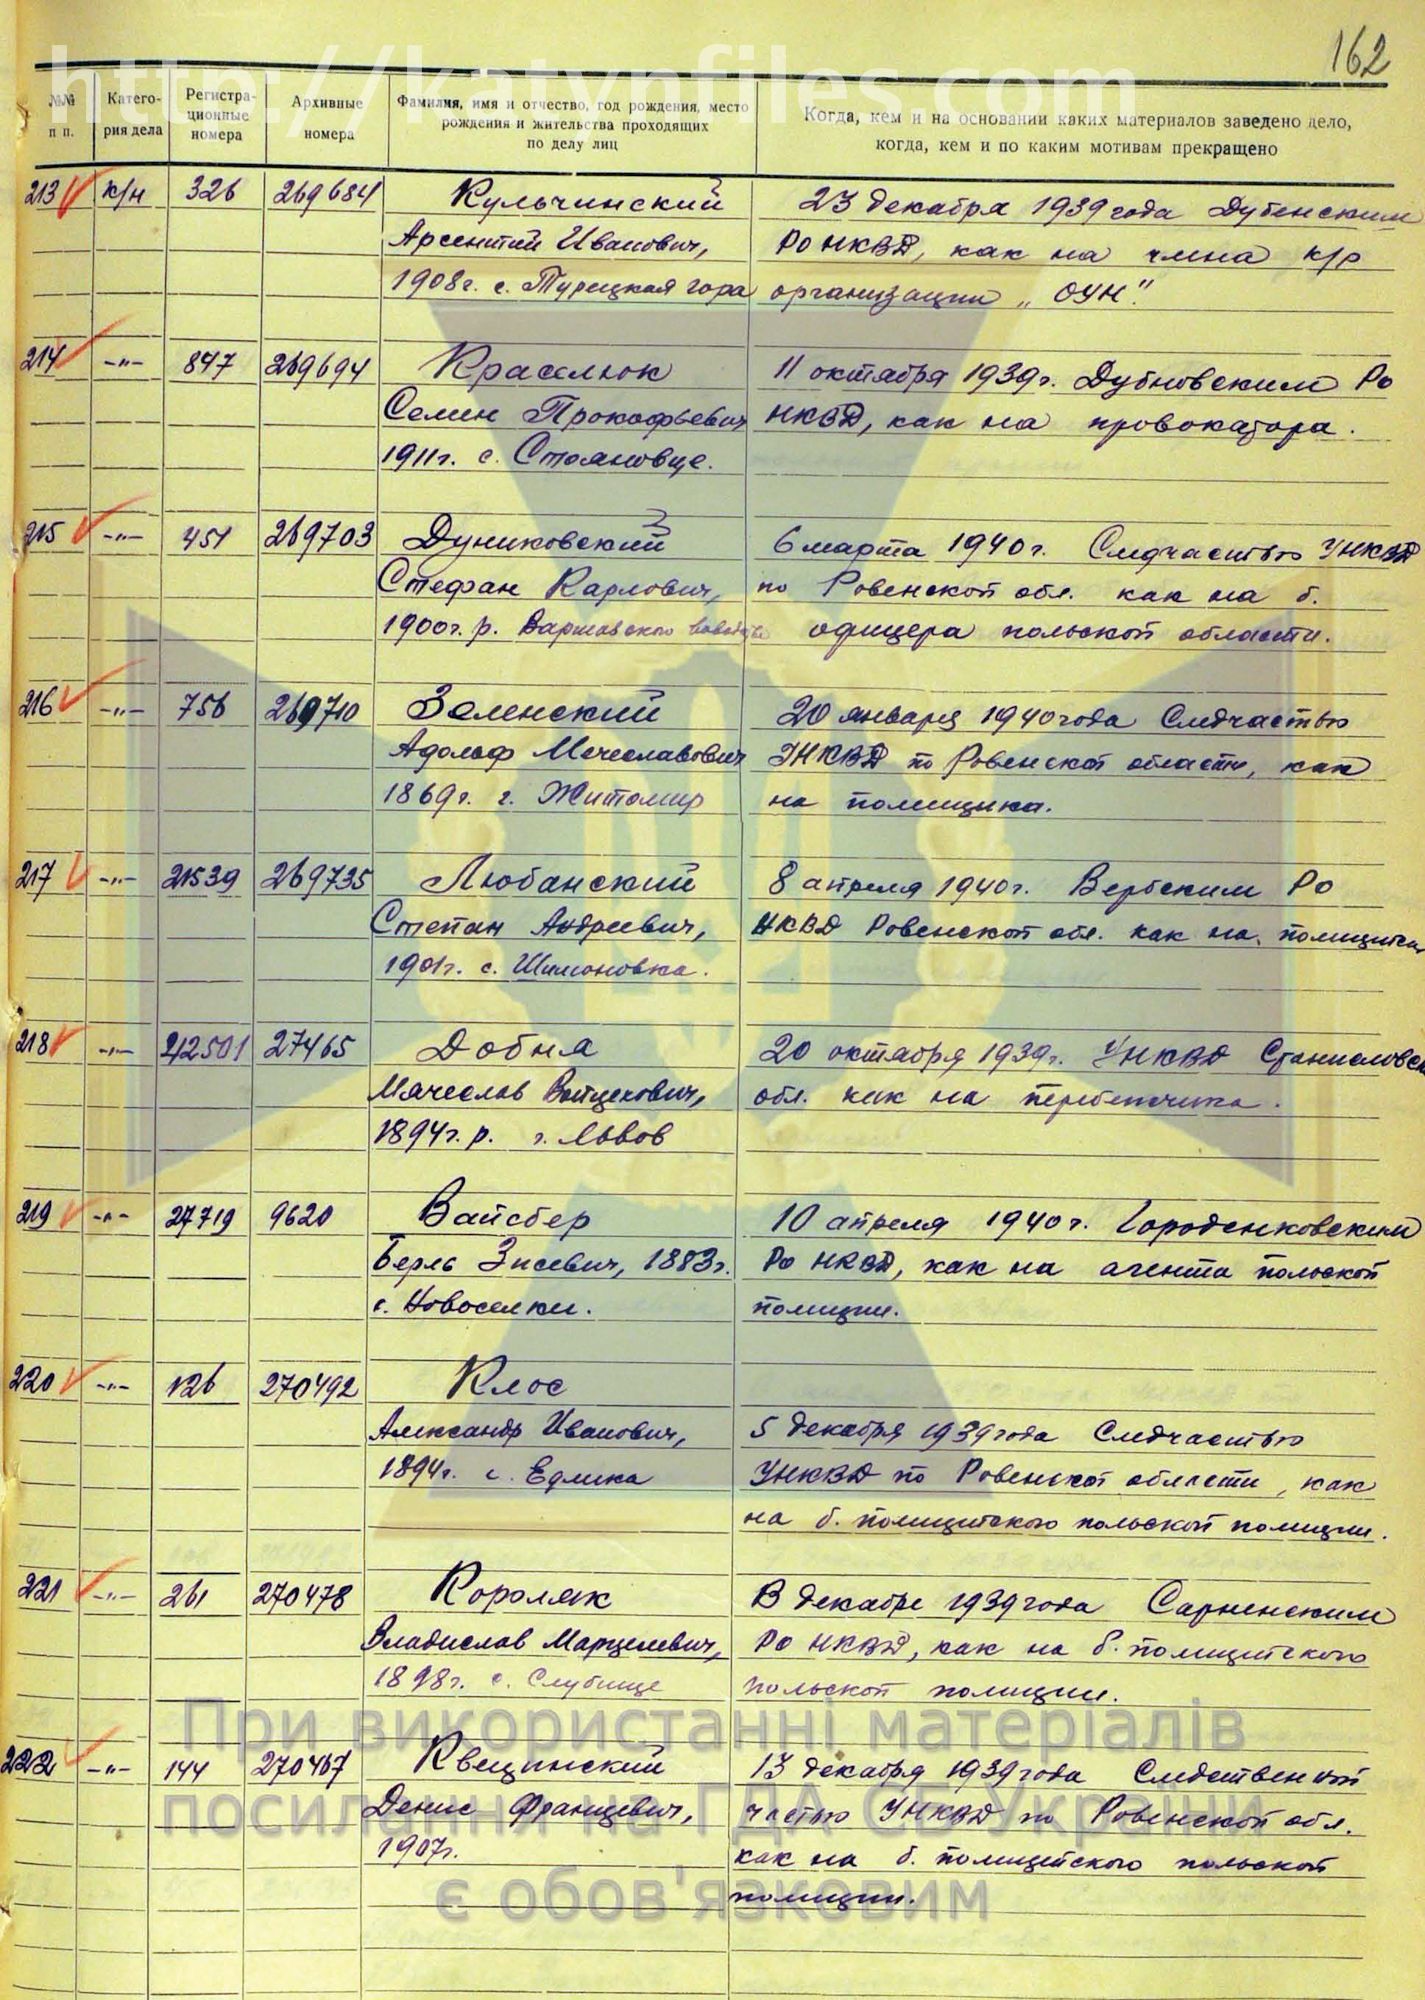 http://katynfiles.com
162
№№ п п.
Катего-
рия дела
Регистра-
ционные
номера
Архивные
номера
Фамилия, имя и отчество, год рождения, место
рождения и жительства проходящих
по делу лиц
Когда, кем и на основании каких материалов заведено дело,
когда, кем и по каким мотивам прекращено
213 к/н 326 269684 Кульчинский 23 декабря 1939 года Дубенским
Арсентий Иванович, РО НКВД, как на члена к/р
1908г. с. Турецкая гора организации „ОУН".
214 -"- 847 269694 Краселюк 11 октября 1939г. Дубновским РО
Семен Прокофьевич НКВД, как на провокатора.
1911г. с. Стояновце.
215 -"- 451 269703 Дуниковский 6 марта 1940г. Следчастью УНКВД
Стефан Карлович, по Ровенской обл. как на б.
1900г. р. Варшавского офицера польской области.
216 -"- 756 269710 Зеленский 20 января 1940 года Следчастью
Адольф Мечеславович УНКВД по Ровенской области, как
1869г. г. Житомир на помещика.
217 -"- 21539 269735 Любанский 8 апреля 1940г. Вербским РО
Степан Андреевич, НКВД Ровенской обл. как на
1901г. с. Шимоновка.
218 -"- 212501 27465 Добня 20 октября 1939г. УНКВД
Мячеслав Войцехович, обл. как на перебежчика.
1894г. р. г. Львов
219 -"- 27719 9620 Вайсбер 10 апреля 1940г. Городенковским
Берль Зисевич, 1883г. РО НКВД, как на агента польской
с. Новоселки. полиции.
220 -"- 126 270492 Клос
Александр Иванович, 5 декабря 1939 года Следчастью
1894г. с. Едлика УНКВД по Ровенской области, как
на б. полицейского польской полиции.
221 -"- 261 270478 Короляк В декабре 1939 года Сарненским
Владислав Марцелевич, РО НКВД, как на б. полицейского
1898г. с. Слубице польской полиции.
При використанні матеріалів
222 -"- 144 270467 Квецинский 13 декабря 1939 года Следственной
посилання на ГДА СБ України
Денис Францевич, частью УНКВД по Ровенской обл.
1907г. как на б. полицейского польской
є обов'язковим
полиции.